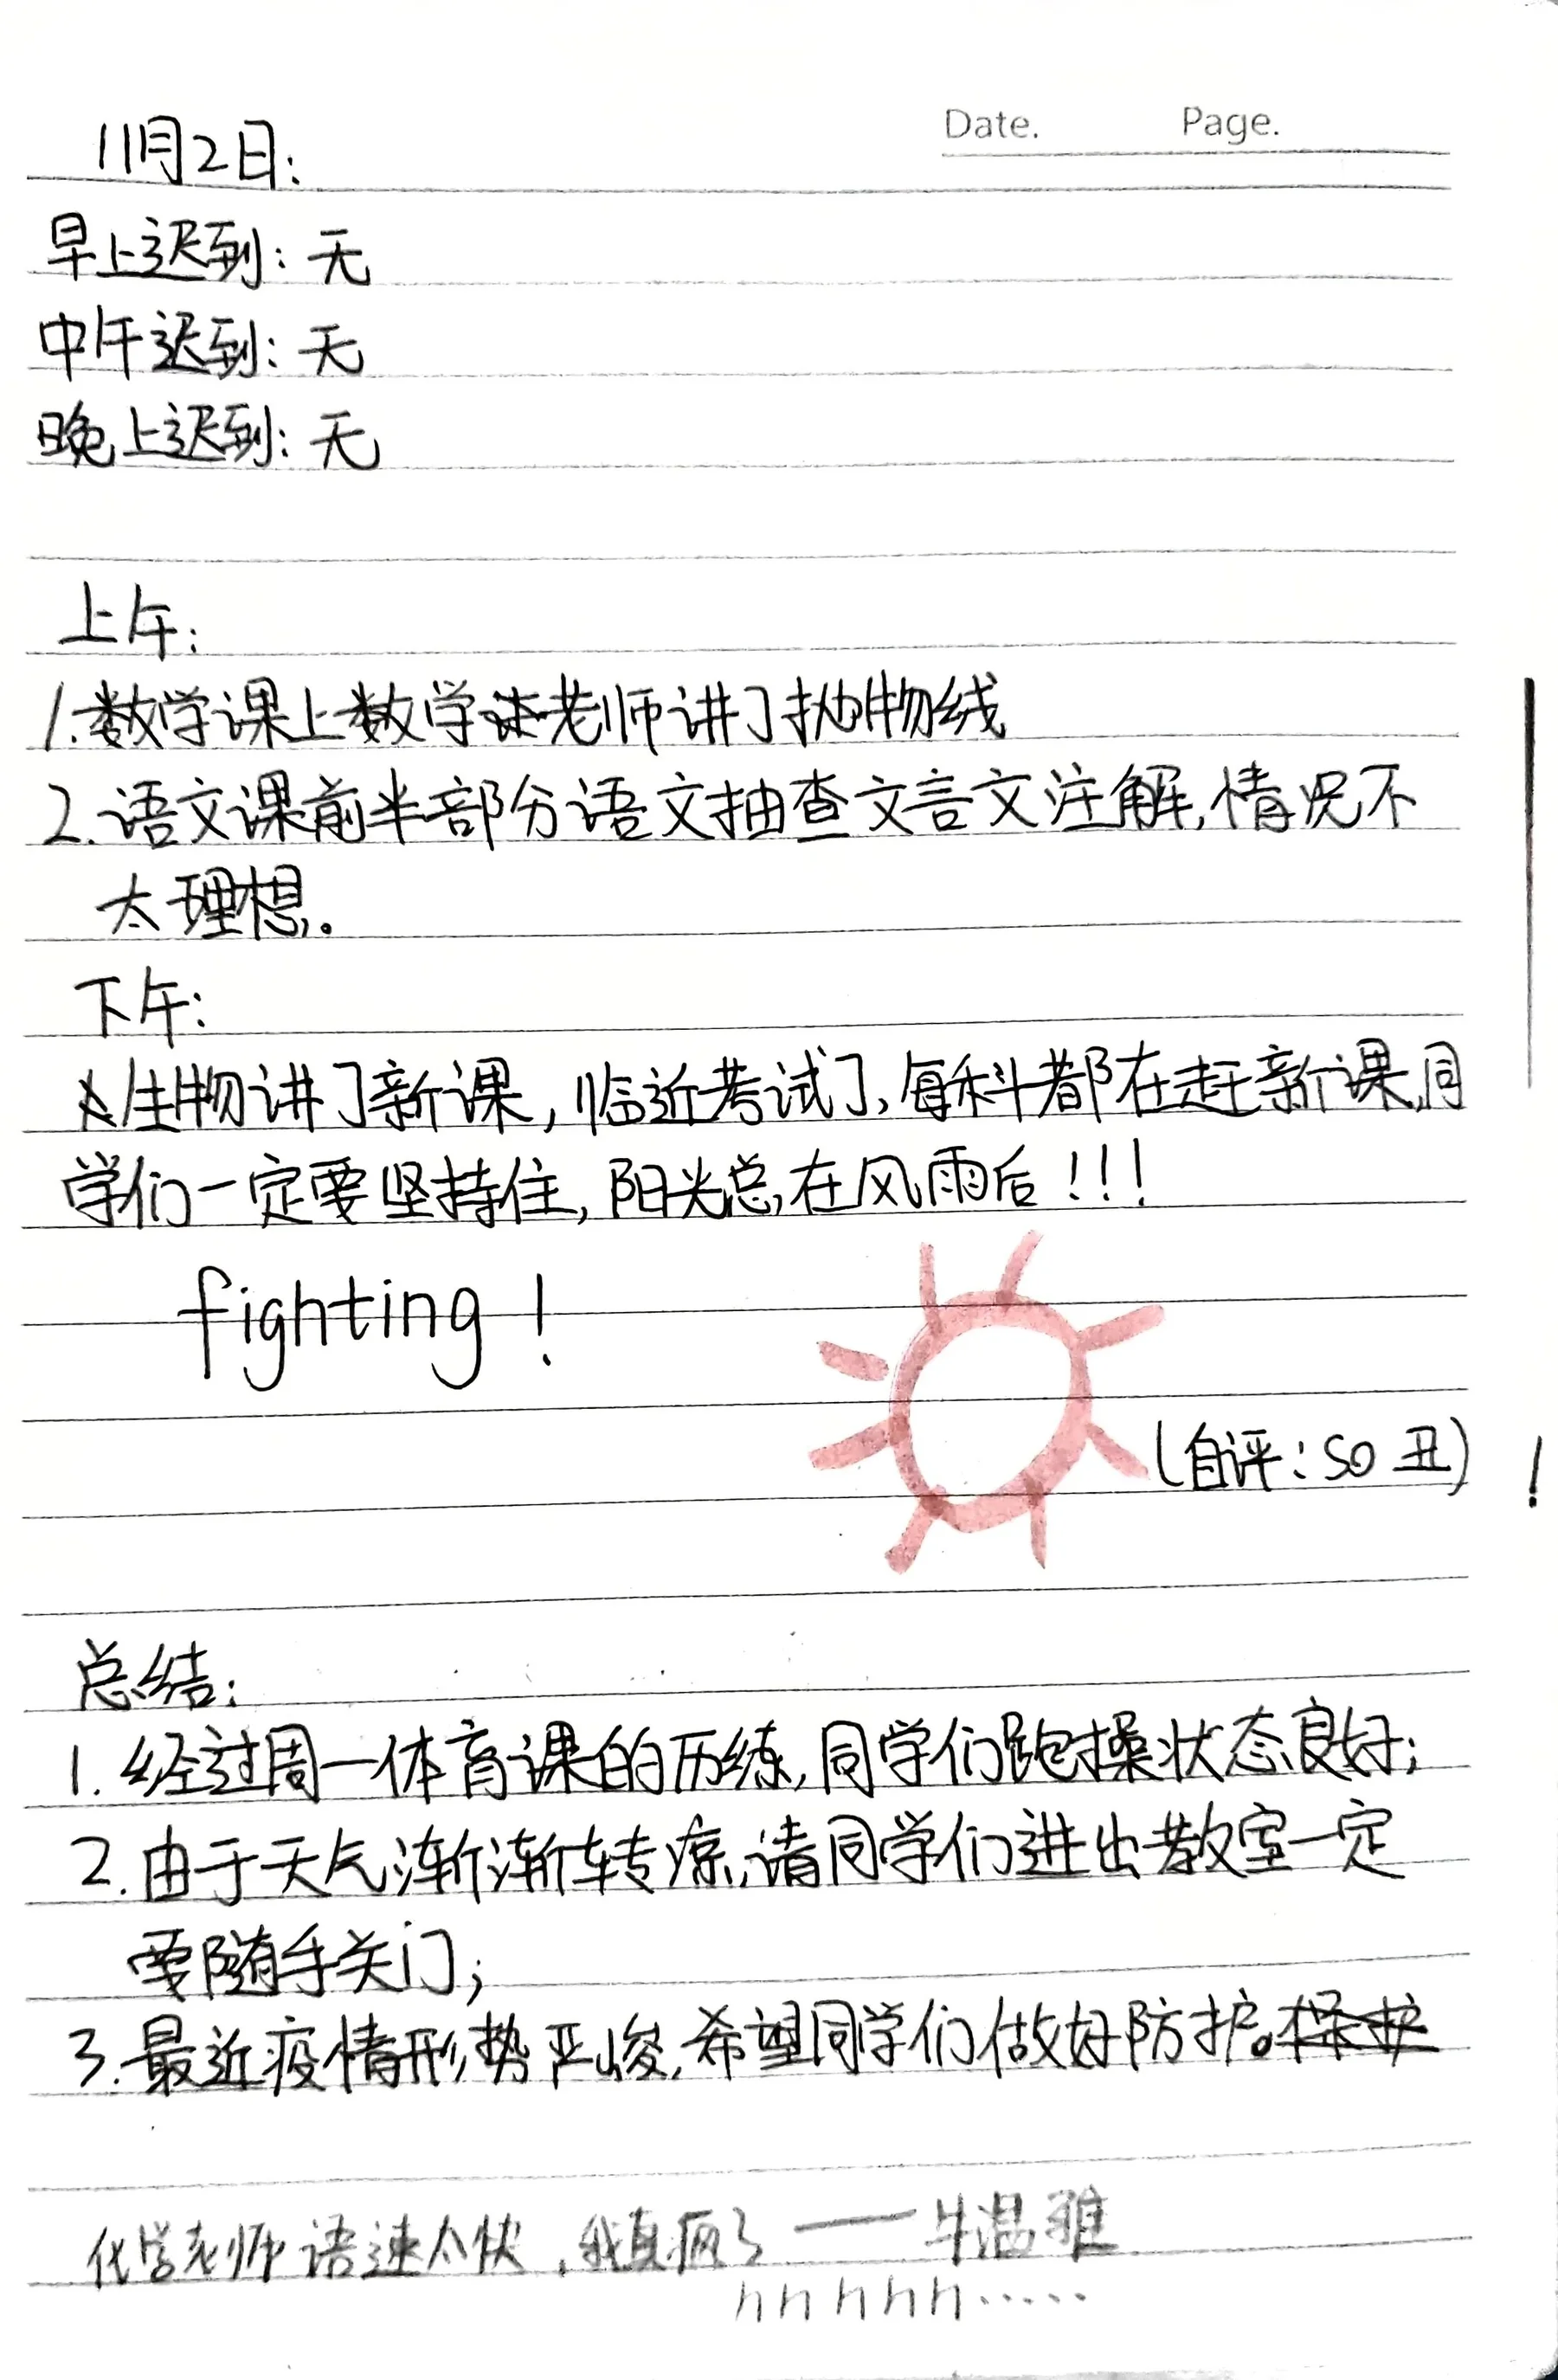 Date. Page.
11月2日:
早上迟到: 无
中午迟到: 无
晚上迟到: 无
上午:
1.数学课上数学老师讲了抛物线
2.语文课前半部分语文抽查文言文注解,情况不
太理想。
下午:
生物讲了新课,临近考试了,每科都在赶新课,同
学们一定要坚持住,阳光总在风雨后!!!
fighting!
(自评:so 丑)
!
总结:
1.经过周一体育课的历练,同学们跑操状态良好;
2.由于天气渐渐转凉,请同学们进出教室一定
要随手关门;
3.最近疫情形势严峻,希望同学们做好防护。
化学老师语速太快,我真疯了——牛温雅
hhhhh……